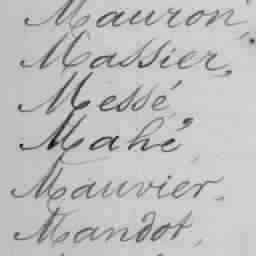 Mauron,
Massier,
Messé
Mahé,
Mauvier.
Mandot,